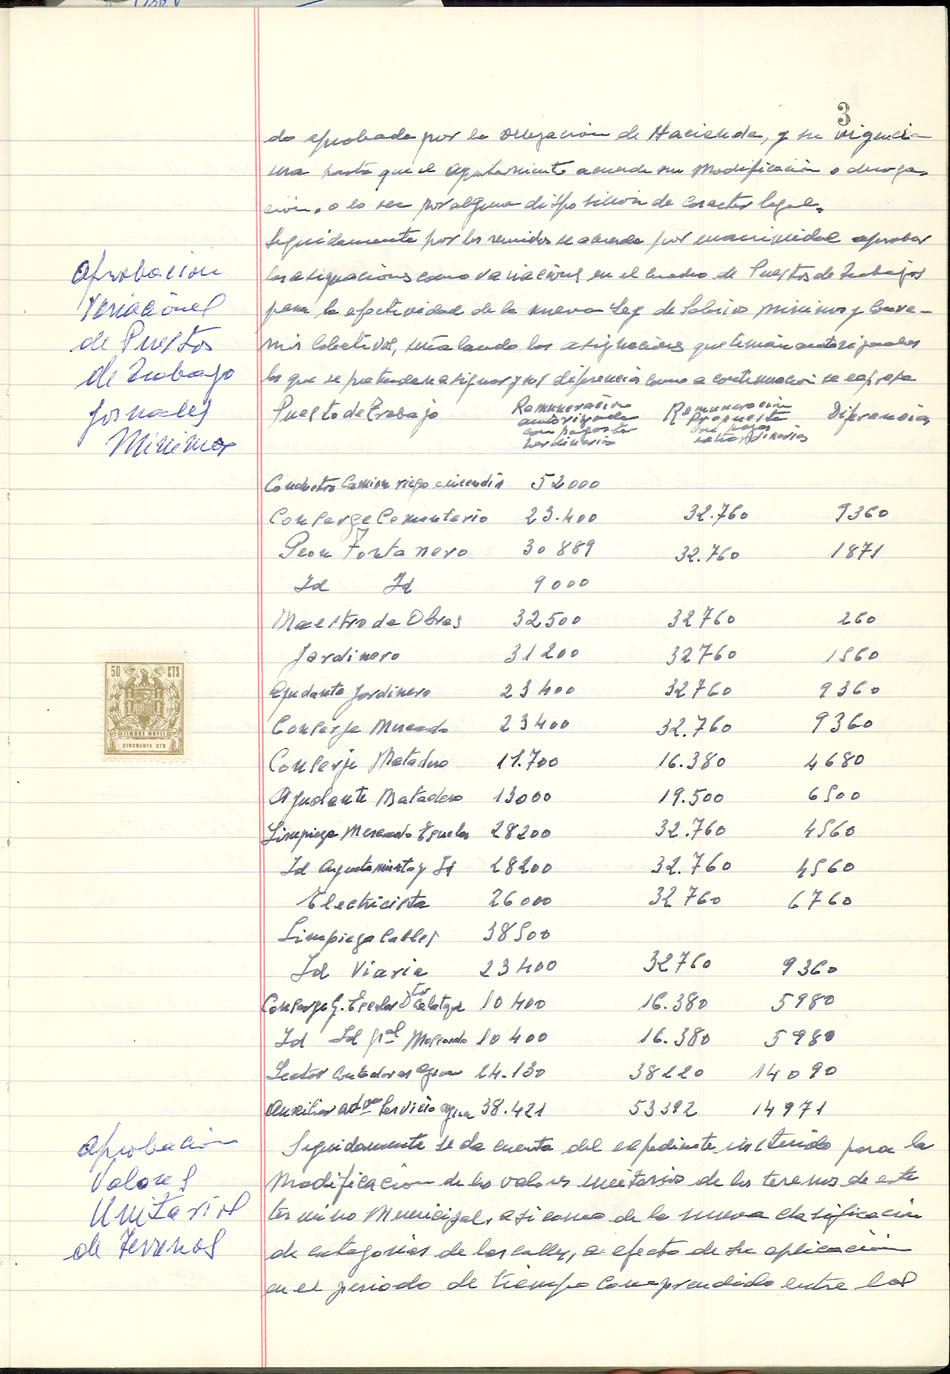 3
do aprobada por la Delegación de Hacienda, y su vigencia
sera hasta que el Ayuntamiento acuerde su modificación o deroga-
ción, o lo sea por alguna disposición de caracter legal.
Seguidamente por los reunidos se acuerda por unanimidad aprobar
las asignaciones como variaciones en el cuadro de Puestos de Trabajos
para la efectividad de la nueva Ley de Salarios minimos y Conve-
nios Colectivos, señalando las asignaciones que tenian autorizadas
las que se pretenden asignar y sus diferencias como a continuación se expresa
aprobacion
Variaciones
de Puestos
de Trabajo
Jornales
Minimos
Puesto de Trabajo Remuneración autorizada con pagas extraordinarias Remuneracion Propuesta con pagas extraordinarias Diferencias
Conductor Camion riego e incendio 52000
Conserge Cementerio 23.400 32.760 9360
Peon Fontanero 30889 32.760 1871
Id Id 9000
Maestro de Obras 32500 32760 260
Jardinero 31200 32760 1560
Ayudante Jardinero 23400 32760 9360
Conserje Mercado 23400 32.760 9360
Conserje Matadero 11.700 16.380 4680
Ayudante Matadero 13000 19.500 6500
Limpieza Mercado Escuelas 28200 32.760 4560
Id Ayuntamiento y Id 28200 32.760 4560
Electricista 26000 32760 6760
Limpieza Calles 38500
Id Viaria 23400 32760 9360
Conserge G. Escolar Dtor Calatayu 10400 16.380 5980
Id Id Gral Moscardo 10400 16.380 5980
Lector Contadores agua 24.130 38220 14090
Auxiliar advo Servicio agua 38.421 53392 14971
50 CTS
TIMBRE MOVIL
CINCUENTA CTS
aprobación
Valores
Unitarios
de Terrenos
Seguidamente se da cuenta del expediente instruido para la
Modificación de los valores unitarios de los terrenos de este
termino Municipal, asi como de la nueva clasificación
de categorias de las calles, a efecto de su aplicación
en el periodo de tiempo comprendido entre los